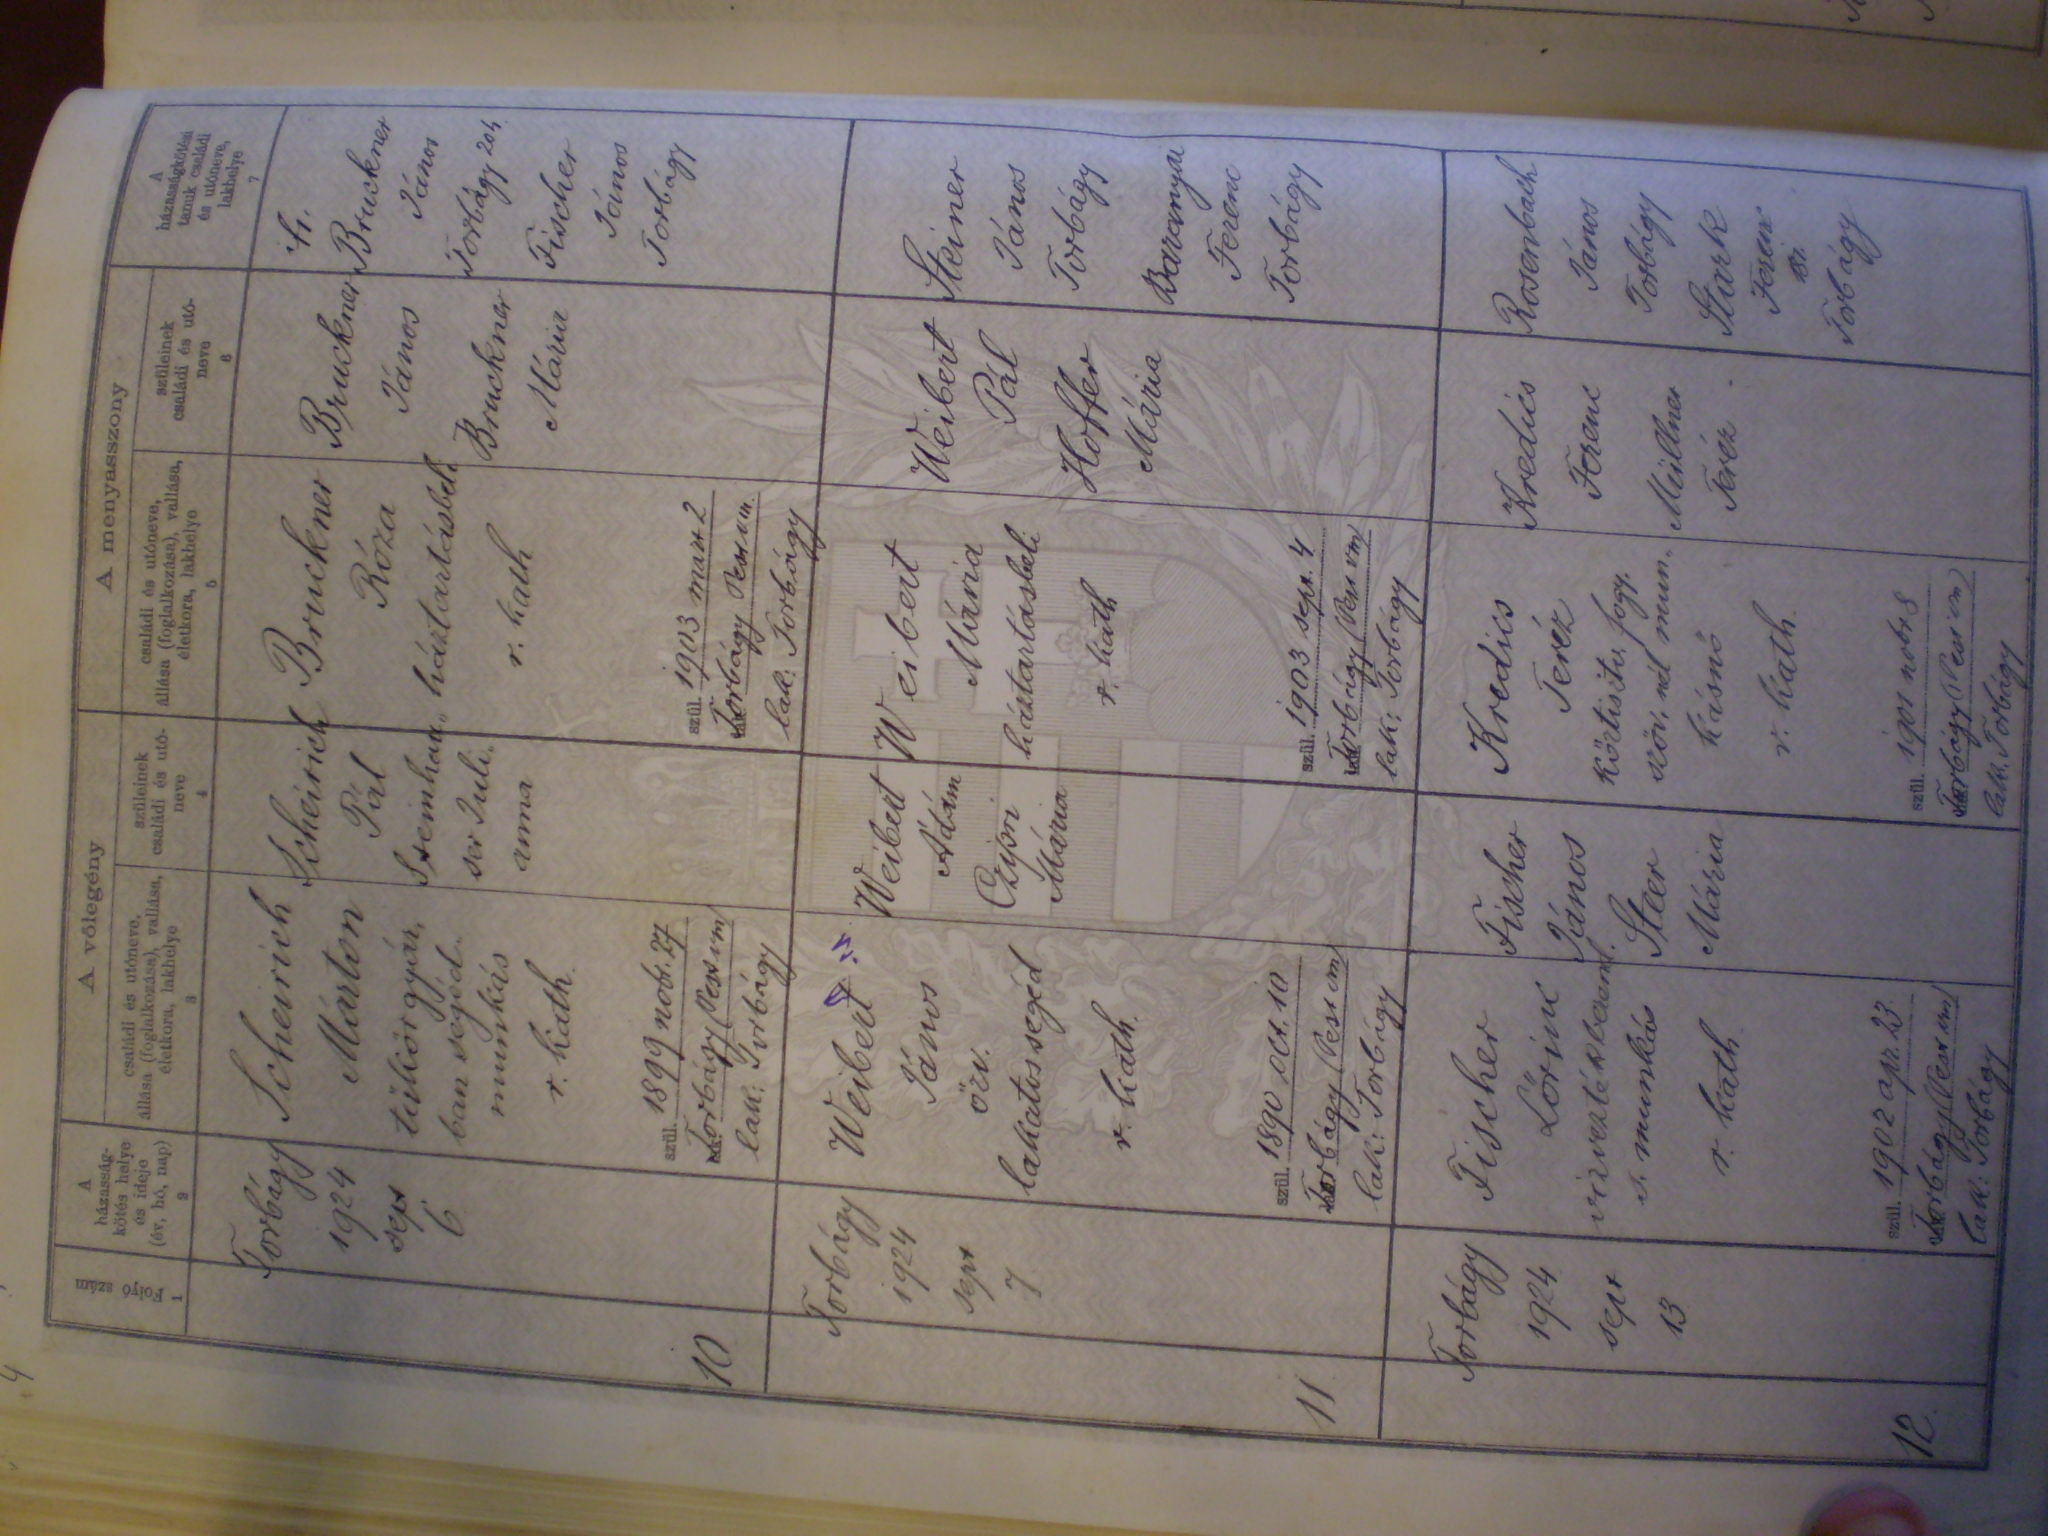 1
Folyó szám
A
házasság-
kötés helye
és ideje
(év, hó, nap)
2
A vőlegény
családi és utóneve,
állása (foglalkozása), vallása,
életkora, lakhelye
3
szüleinek
családi és utó-
neve
4
A menyasszony
családi és utóneve,
állása (foglalkozása), vallása,
életkora, lakhelye
5
szüleinek
családi és utó-
neve
6
A
házasságkötési
tanuk családi
és utóneve,
lakhelye
7
10
Torbágy
1924
sept
6
Scheirich
Márton
tükörgyár,
ban segéd.
munkás
r. kath.
szül. 1899 nob. 27
Torbágy (Pest vm)
lak: Torbágy
Scheirich
Pál
Steinhau,
ser Juli,
anna
Bruckner
Róza
háztartásbeli
r. kath
szül. 1903 mart 2
Torbágy Pest vm.
lak: Torbágy
Bruckner
János
Bruckner
Mária
ifr.
Bruckner
János
Torbágy 204
Fischer
János
Torbágy
11
Torbágy
1924
sept
7
Weibert
János
özv.
lakatossegéd
r. kath.
szül. 1890 okt. 10
Torbágy (Pest vm)
lak: Torbágy
Weibert
Ádám
Czipri
Mária
Weibert
Mária
háztartásbeli
r. kath
szül. 1903 sept. 4
Torbágy (Pest vm)
lak: Torbágy
Weibert
Pál
Hoffer
Mária
Steiner
János
Torbágy
Baranyai
Ferenc
Torbágy
12
Torbágy
1924
sept
13
Fischer
Lőrinc
s. munkás
r. kath
szül. 1902 apr. 23
Torbágy (Pest vm)
lak: Torbágy
Fischer
János
Steer
Mária
Kredics
Teréz
köztiszt. fogy.
szöv. nél mun,
kásnő
r. kath.
szül. 1901 nobr 8
Torbágy (Pest vm)
lak. Torbágy
Kredics
Ferenc
Müllner
Teréz
Rosenbach
János
Torbágy
Stark
Ferenc
Torbágy